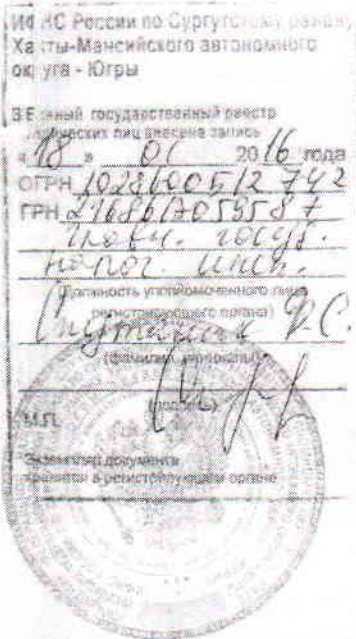 ИФНС России по Сургутскому району
Ханты-Мансийского автономного
округа - Югры
В Единый государственный реестр
юридических лиц внесена запись
« 18 » 01 2016 года
ОГРН 1028600512742
ГРН 2168617059587
главн. госуд.
налог. инсп.
(должность уполномоченного лица
регистрирующего органа)
Р.С.
(фамилия, инициалы)
(подпись)
М.П.
Экземпляр документа
хранится в регистрирующем органе